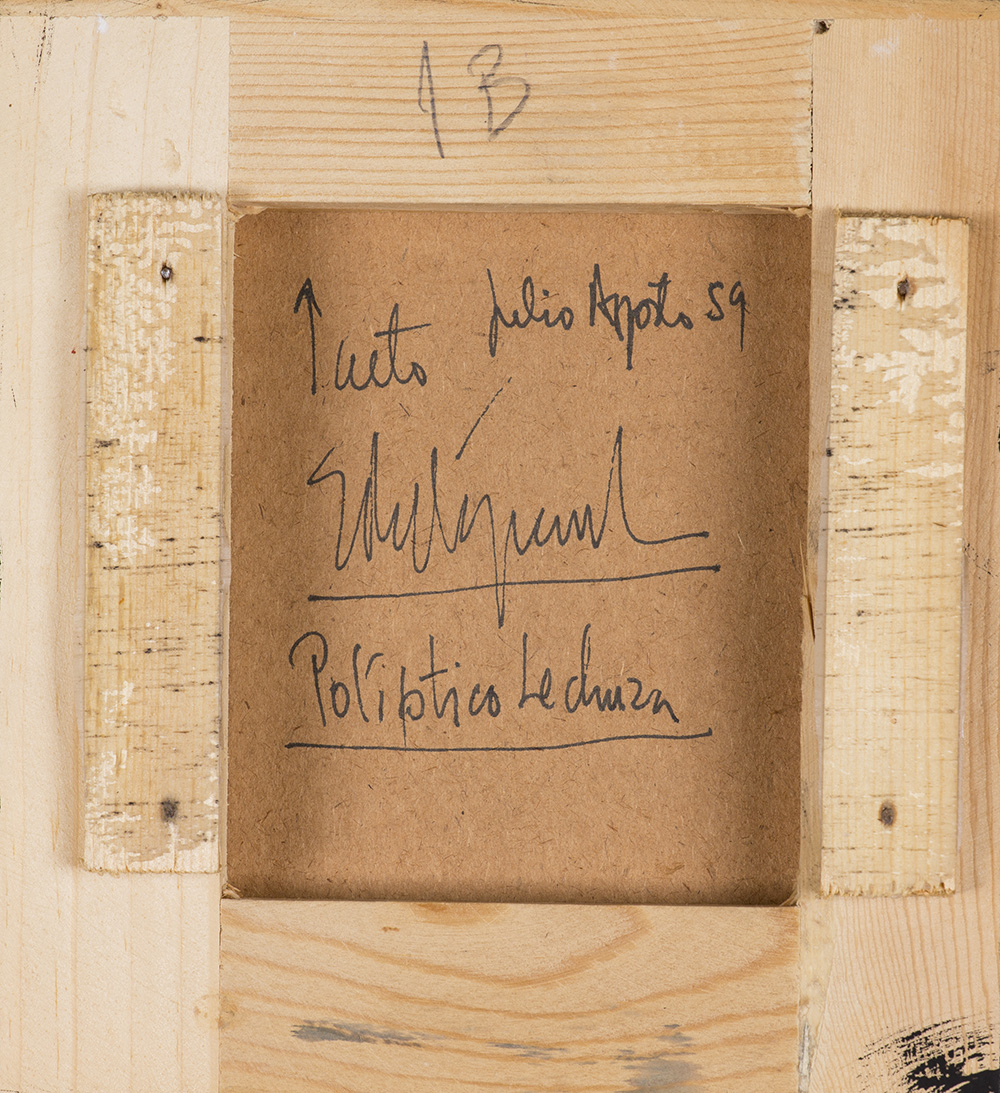 1 B
↑ alto
Julio Agosto 59
Políptico Lechuza